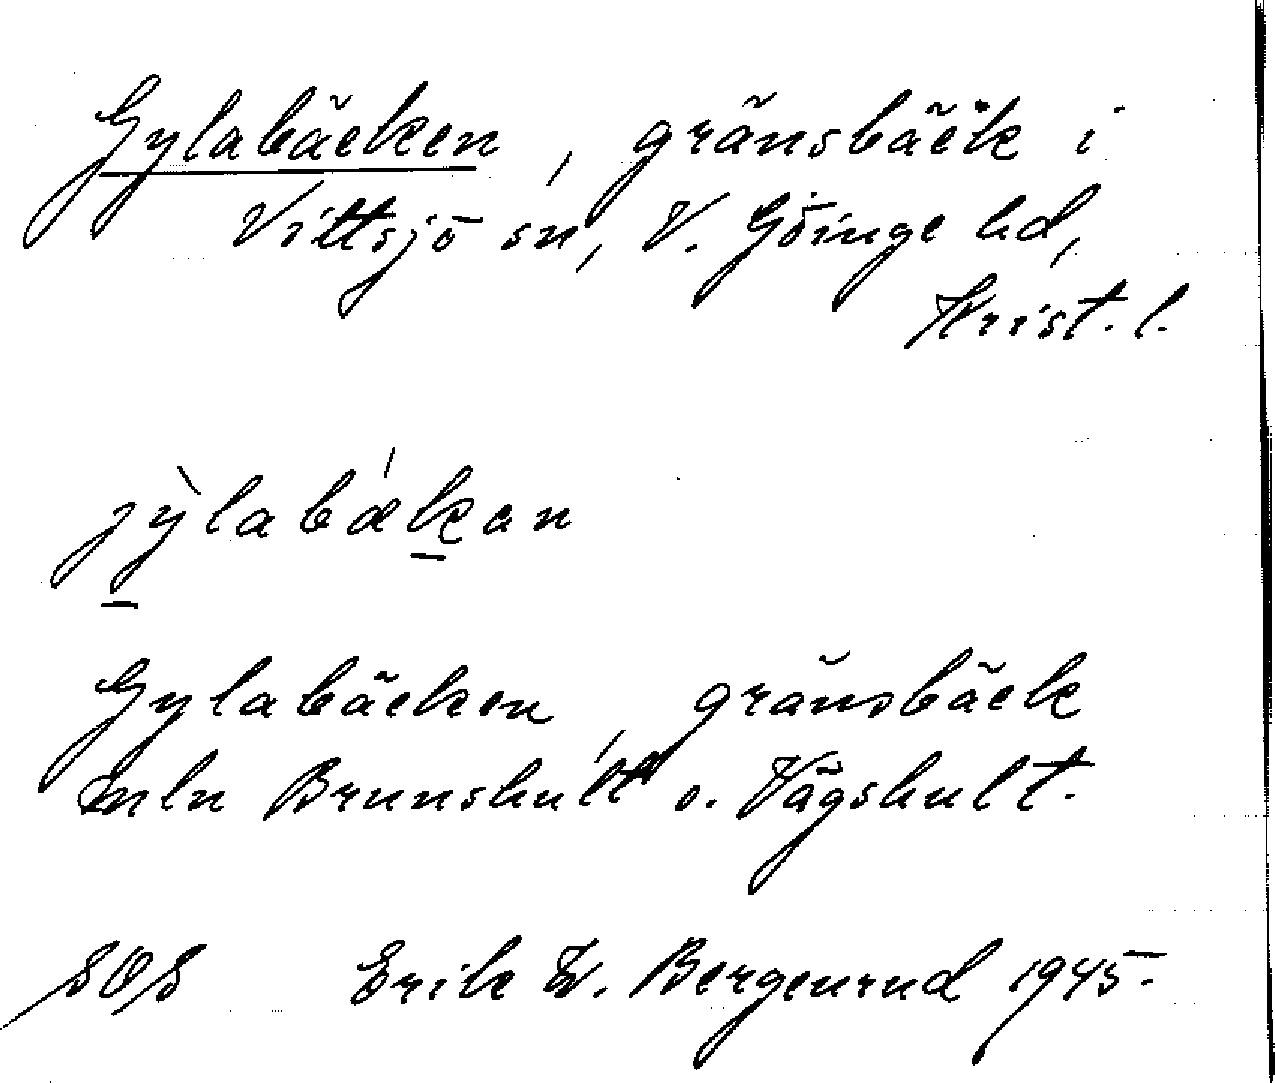 Gylabäcken, gränsbäck i
Vittsjö sn, V. Göinge hd,
Krist. l.
jỳlabákan
Gylabäcken, gränsbäck
mln Brunshult o. Vägshult.
SOS Erik W. Bergenrud 1945.